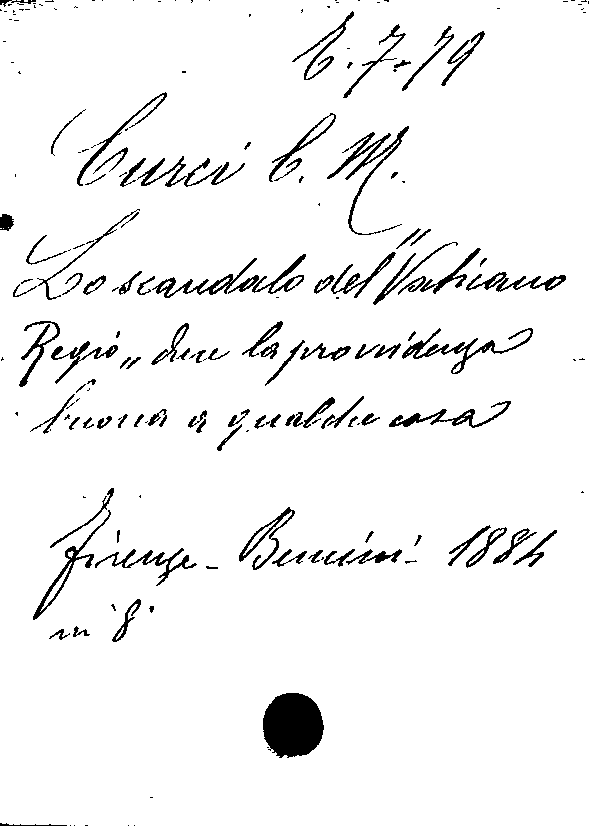 E. 7. 79
Curci C. M.
Lo scandalo del "Vaticano
Regio„ duce la provvidenza
buona a qualche cosa
Firenze - Bencini - 1884
in 8°